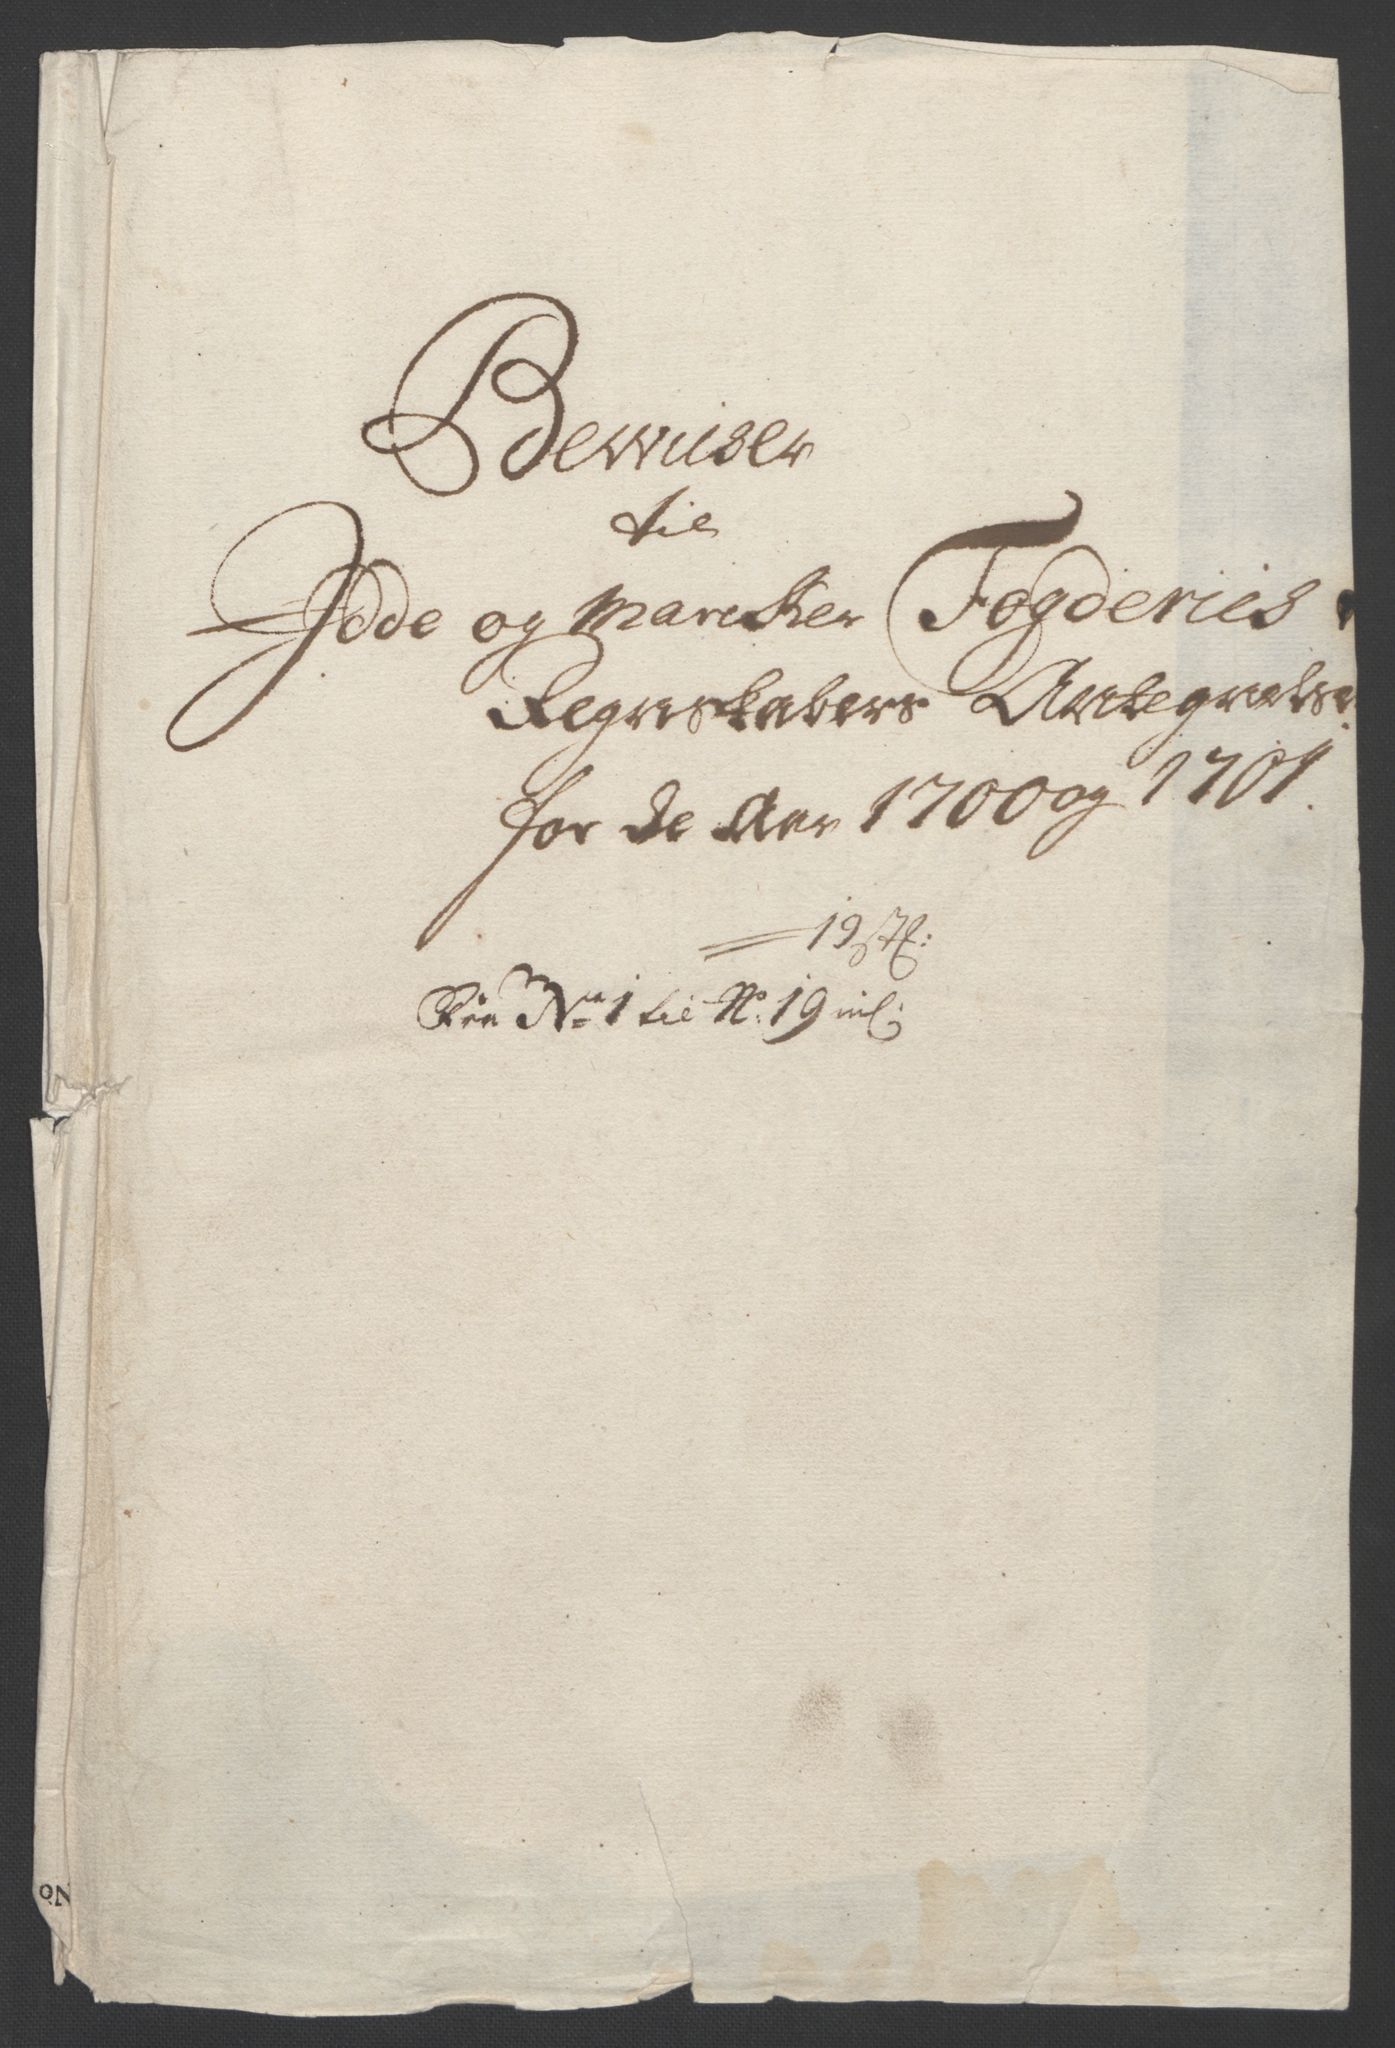 Bewiiser
til
Jdde og Marcker Fogderies
Regnskabers Antegnelser
for de Aar 1700 og 1701.
19 st:
Fra No 1 til No: 19 incl:
No